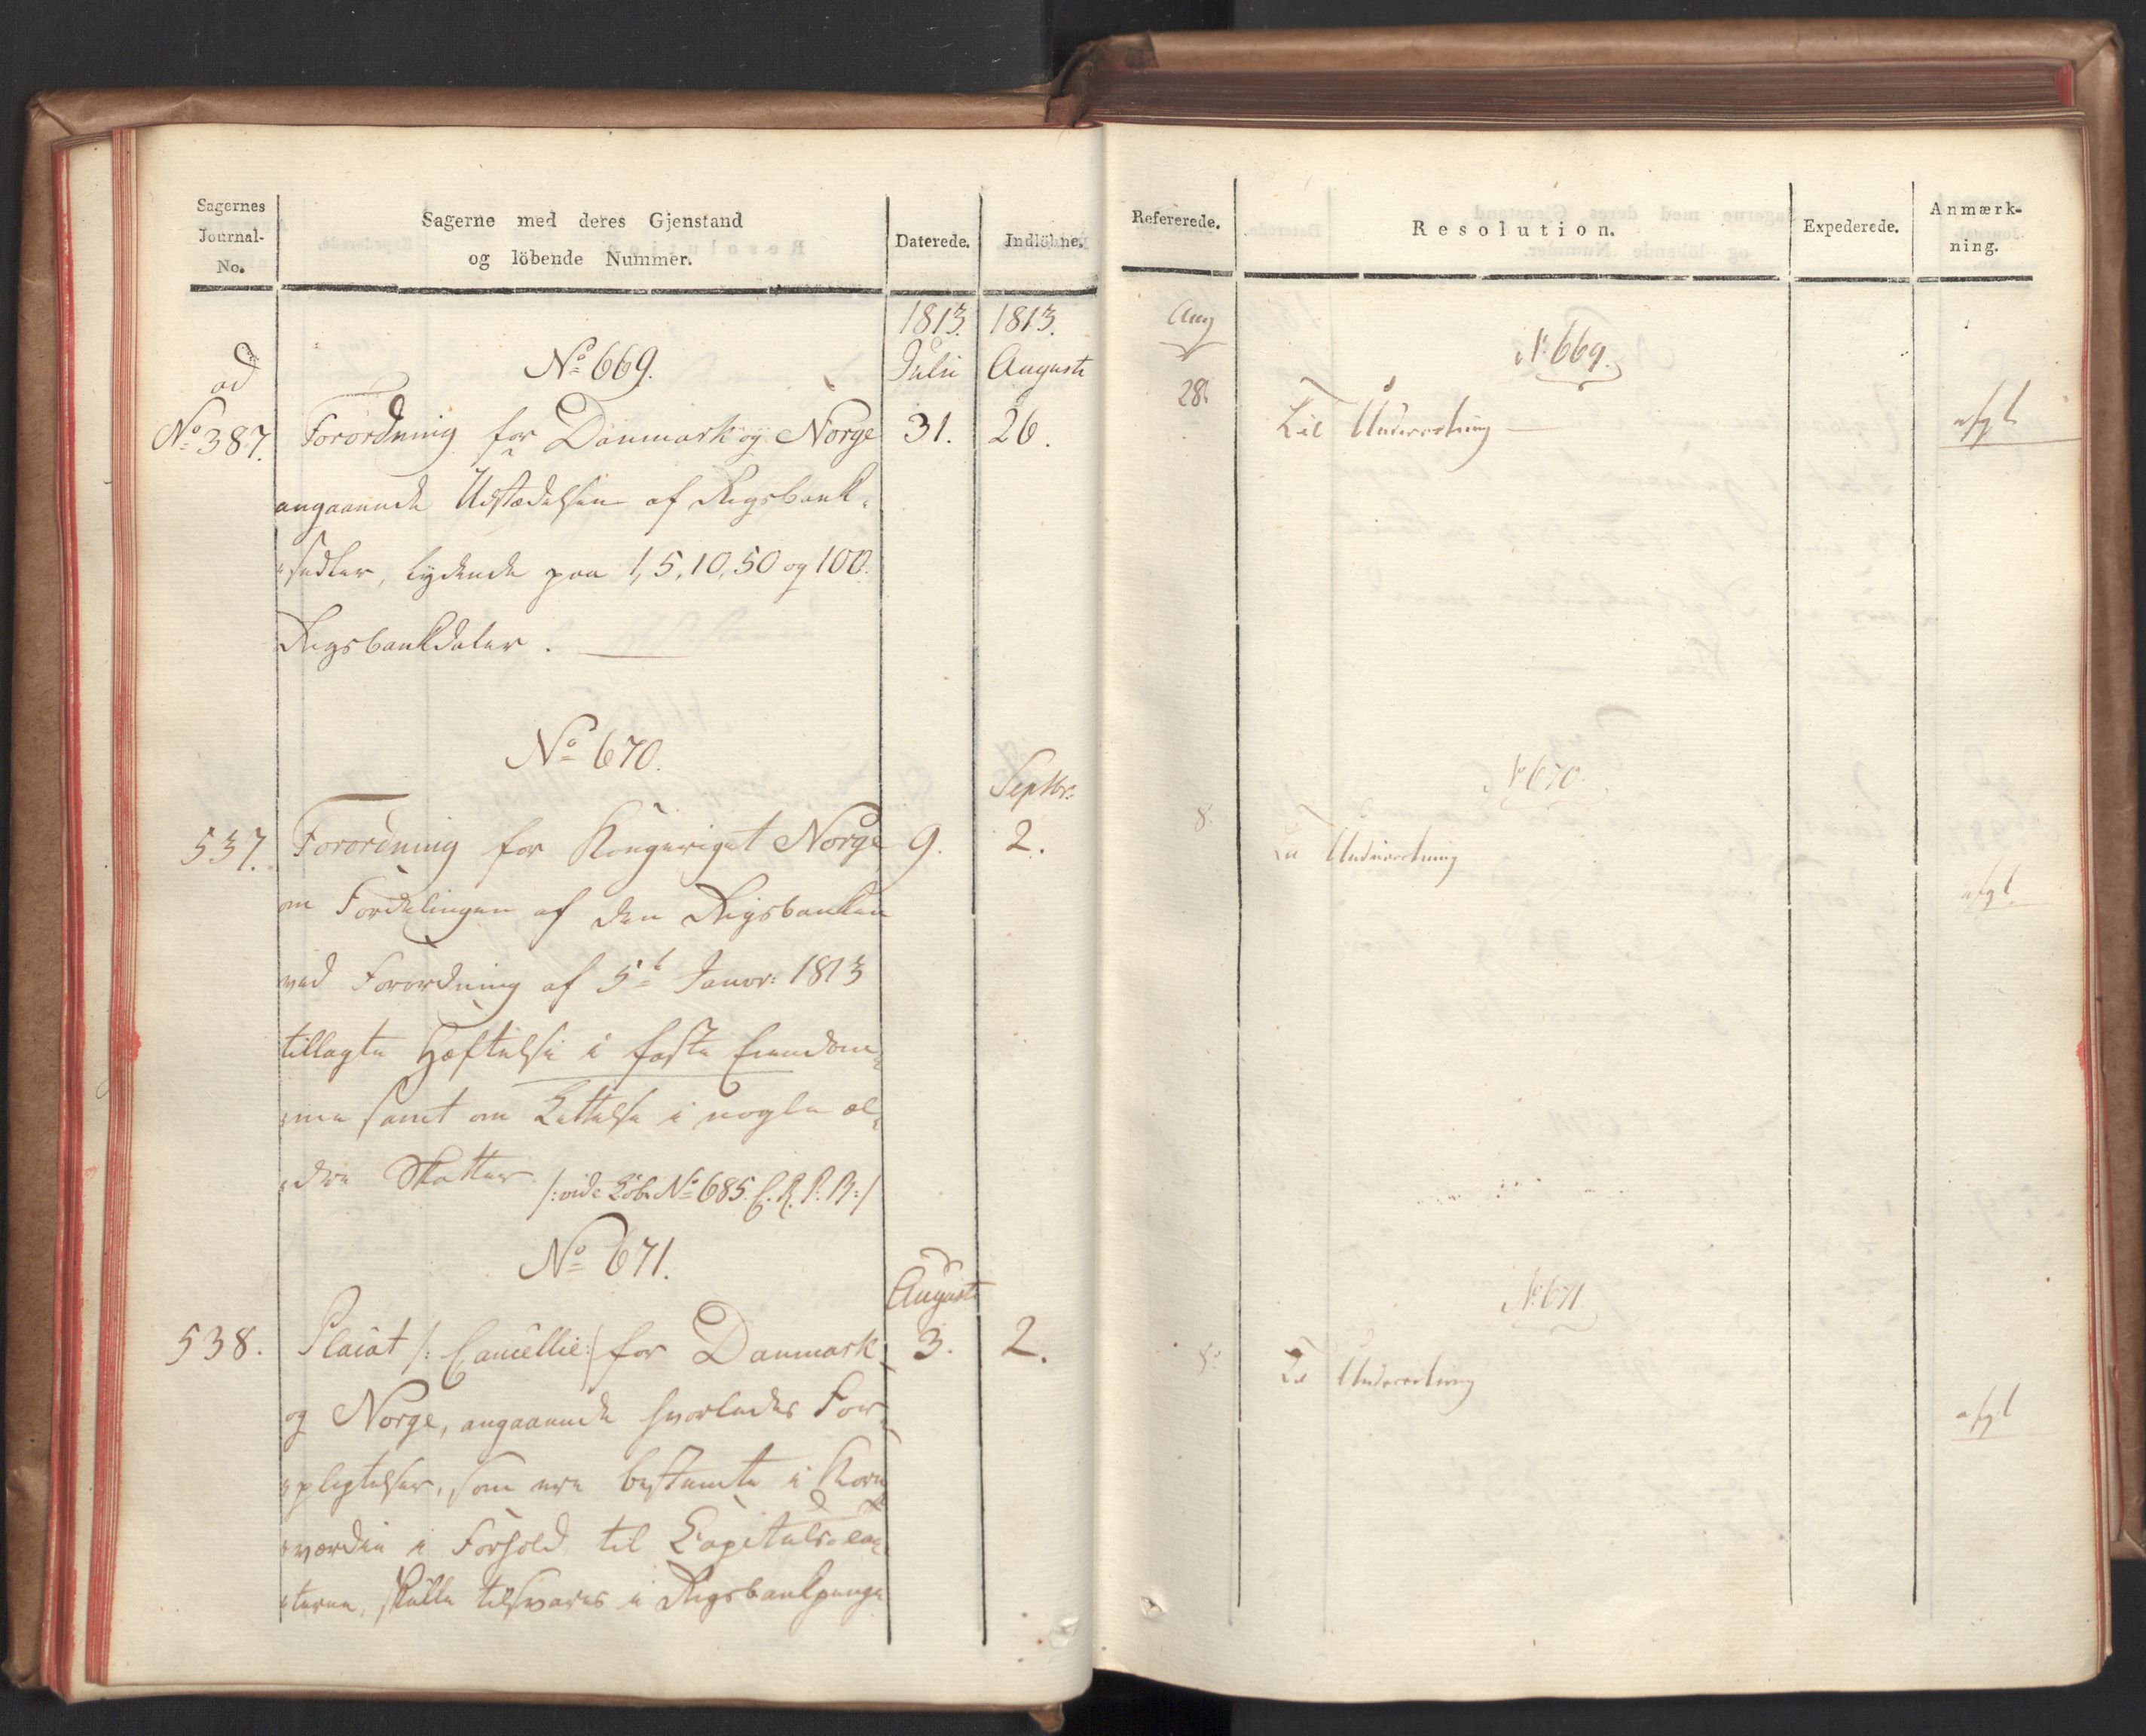 Sagernes
Journal-
No.
Sagerne med deres Gjenstand
og löbende Nummer.
Daterede.
Indlöbne.
1813.
1813.
Julii
Augusti
ad
No 387.
No 669.
Forordning for Danmark og Norge
31.
26.
angaaende Udstædelsen af Rigsbank-
sedler, lydende paa 1, 5, 10, 50 og 100
Rigsbankdaler.
No 670.
Septbr:
537.
Forordning for Kongeriget Norge
9.
2.
om Fordelingen af den Rigsbanken
ved Forordning af 5t Januar: 1813
tillagte Hæftelse i faste Eiendom-
me samt om Lettelse i nogle æl-
dre Skatter. /: vide Løb. No 685. C. R. P. B:/
No 671.
Augusti
538.
Placat /: Cancellie:/ for Danmark
3.
2.
og Norge, angaaende hvorledes For-
pligtelser, som ere bestemte i Korn-
værdie i Forhold til Capitels-tax-
terne, skulle tilsvares i Rigsbankpenge
Refererede.
Resolution.
Expederede.
Anmærk-
ning.
Aug
28.
No 669.
Til Underretning
afgl
No 670.
8.
Til Underretning
afgl.
No 671
8.
Til Underretning
afgl